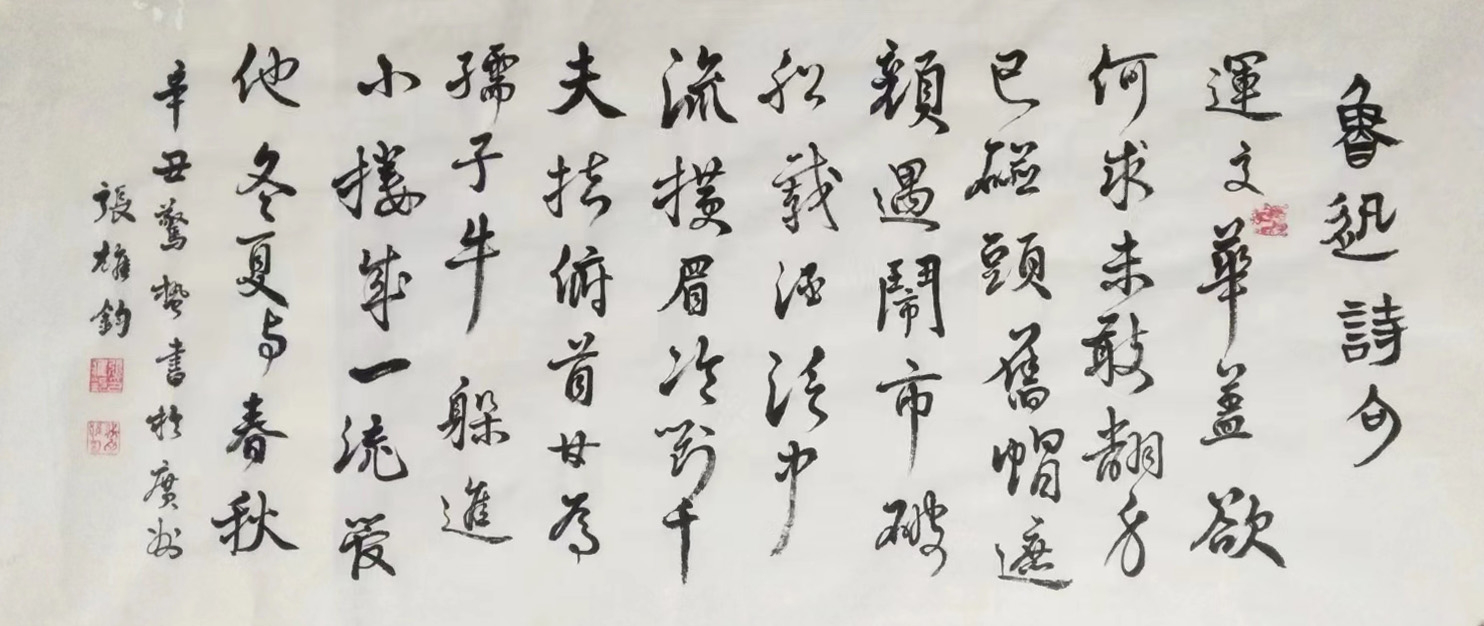 魯迅詩句
運交華蓋欲
何求未敢翻身
已碰頭舊帽遮
顏過鬧市破
船載酒泛中
流橫眉冷對千
夫指俯首甘為
孺子牛躲進
小樓成一統管
他冬夏与春秋
辛丑驚蟄書於廣州
張雄鈞